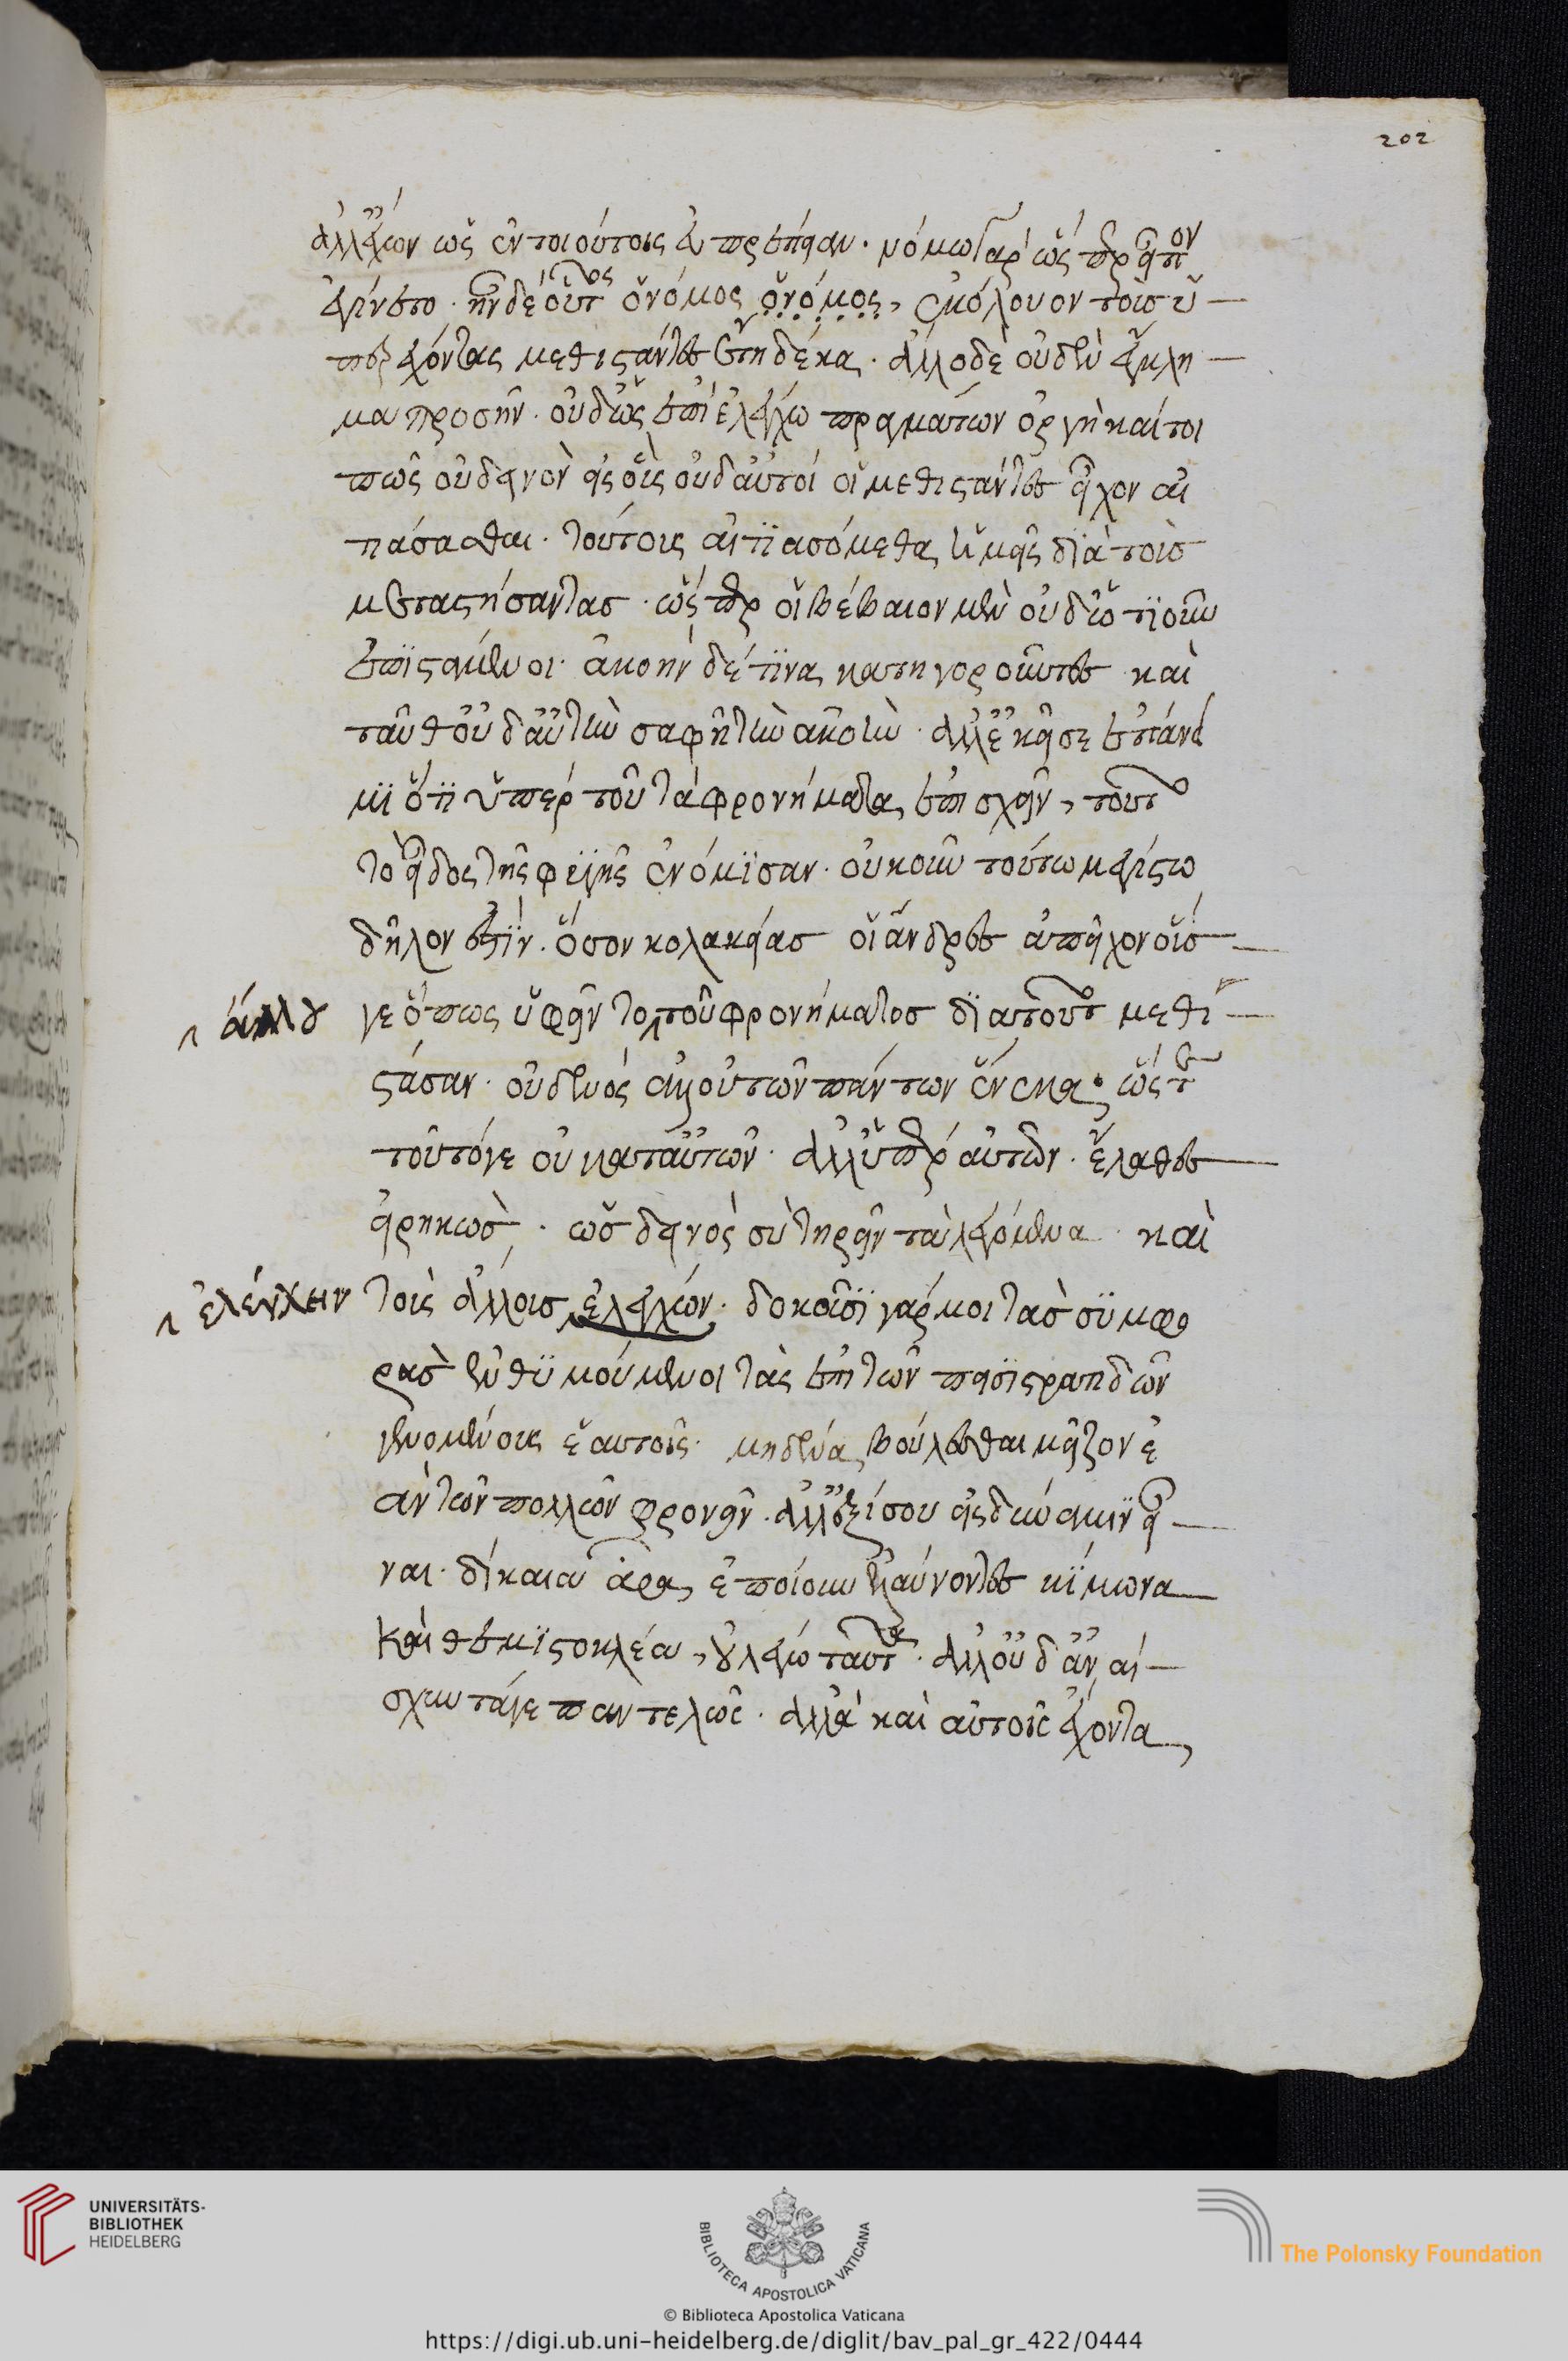 202
ἀλλ' ἔχων ὡς ἐν τοιούτοις εὐπρέπειαν. νόμω γὰρ ὥσπερ εἶπον
ἐγίνετο. ἦν δὲ οὗτος ὁ νόμος ὁ νόμος, ἐκόλουον τοὺς ὑ
περέχοντας μεθιστάντες ἔτη δέκα. ἄλλο δὲ οὐδὲν ἔγκλη
μα προσῆν. οὐδ' ὡς ἐπὶ ἐλέγχω πραγμάτων ὀργὴ καίτοι
πῶς οὐ δεινὸν εἰς οἷς οὐδ' αὐτοὶ οἱ μεθιστάντες εἶχον αἰ
τιάσασθαι. τούτοις αἰτιασόμεθα ἡμεῖς διὰ τοὺς
μεταστήσαντας. ὥσπερ οἱ βέβαιον μὲν οὐδ' ὁτιοῦν
ἐπιστάμενοι. ἀκοὴν δέ τινα κατηγοροῦντες καὶ
ταῦθ' οὐδ' αὐτὴν σαφῆ τὴν ἀκοήν. ἀλλ' ἐκεῖσε ἐπάνει
μι ὅτι ὑπὲρ τοῦ τὰ φρονήματα ἐπισχεῖν, τοῦτο
τὸ εἶδος τῆς φυγῆς ἐνόμισαν. οὐκοῦν τούτω μεγίστω
δῆλον ἐστὶν. ὅσον κολακείας οἱ ἄνδρες ἀπεῖχον οἵς
γε ὅπως ὑφεῖν το τοῦ φρονήματος διὰ τοῦτο μεθί
στασαν. οὐδενὸς ἄλλου τῶν πάντων ἕνεκα. ὥστε
τοῦτόγε οὐ κατ' αὐτῶν. ἀλλ' ὑπὲρ αὐτῶν. ἔλαθες
εἰρηκὼς, ὡς δεινὸς σὺ τηρεῖν τὰ λεγόμενα καὶ
ἐλέγχειν τοὺς ἄλλους ἐλέγχων. δοκοῦσι γάρ μοι τὰς συμφο
ρὰς ἐνθυμούμενοι τὰς ἐπὶ τῶν πεισιστρατιδῶν
γενομένοις ἑαυτοῖς. μηδένα βούλεσθαι μεῖζον ἐ
ᾶν τῶν πολλῶν φρονεῖν. ἀλλ' ἐξίσου εἰς δύναμιν εἶ
ναι. δίκαια ἄρα ἐποίουν ἐλαύνοντες κίμωνα
καὶ θεμιστοκλέα, οὐ λέγω ταῦτα. ἀλλ' οὐδ' ἂν αἰ
σχύντάγε παντελῶς. ἀλλὰ καὶ αὐτοῖς ἔχοντα
UNIVERSITÄTS-
BIBLIOTHEK
HEIDELBERG
BIBLIOTECA APOSTOLICA VATICANA
The Polonsky Foundation
© Biblioteca Apostolica Vaticana
https://digi.ub.uni-heidelberg.de/diglit/bav_pal_gr_422/0444